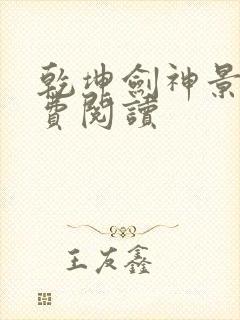 乾坤劍神景
費閱讀
王友鑫